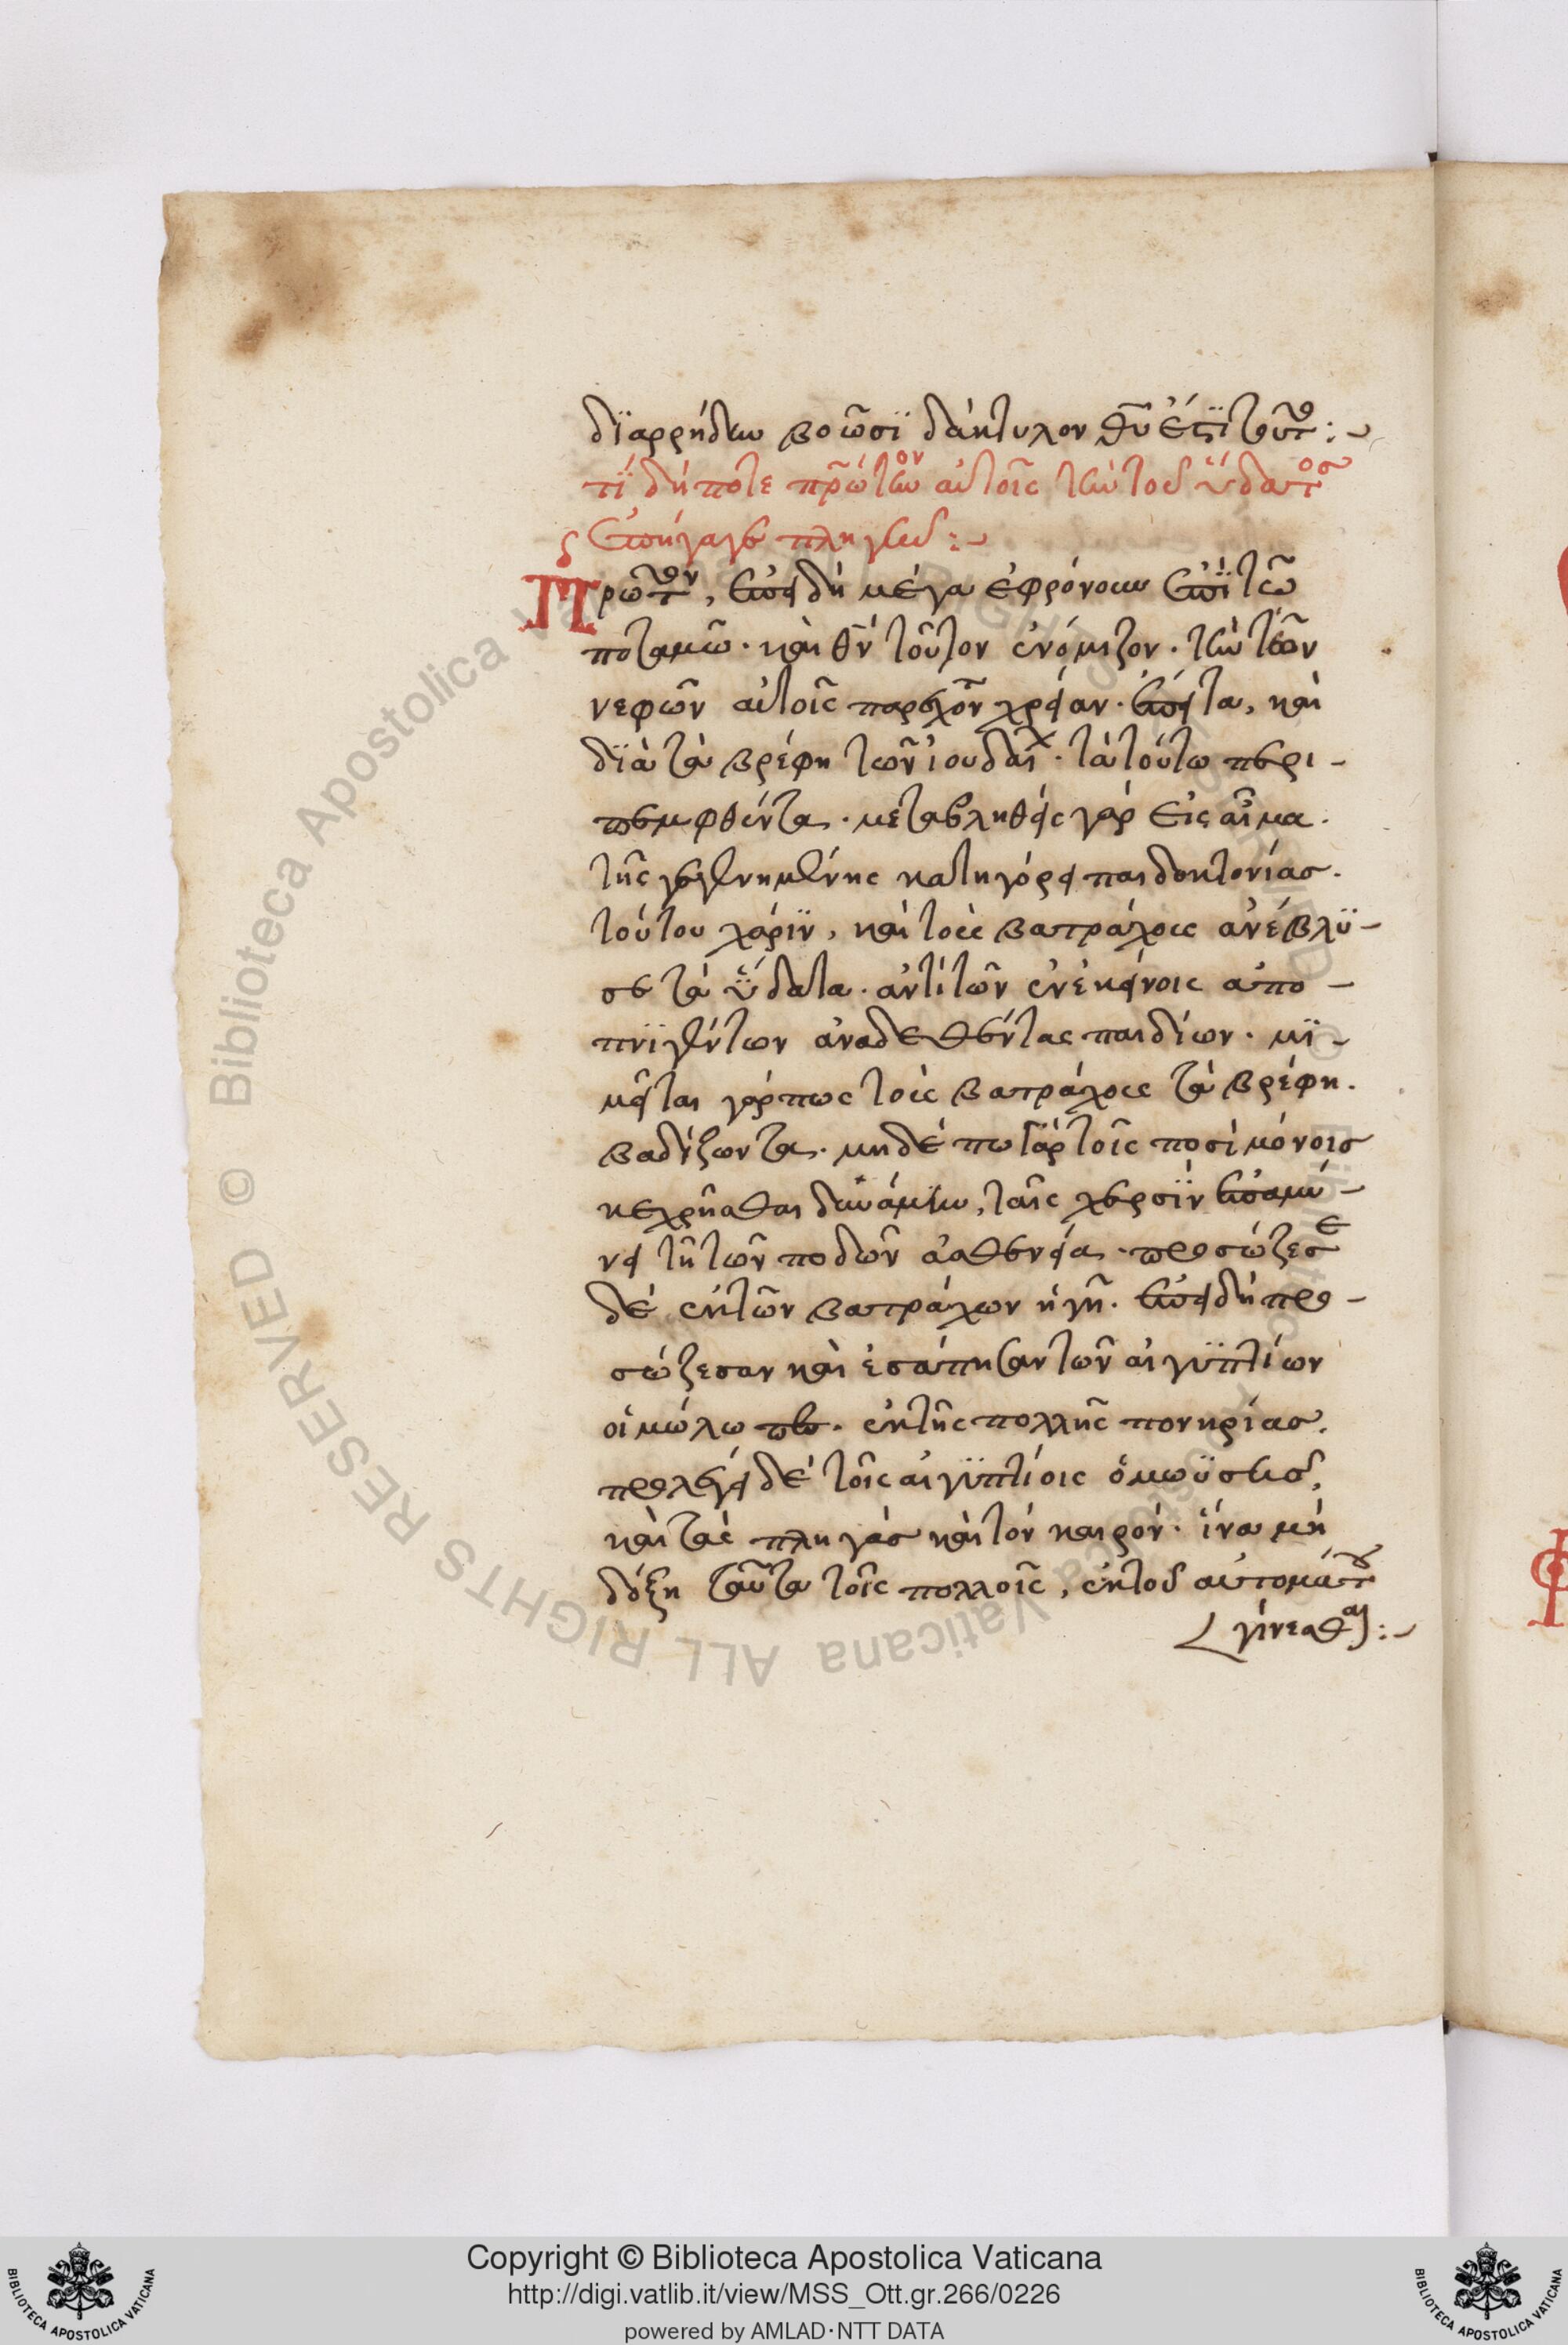 διαρρήδην βοῶσϊ δάκτυλον θῦ ἐστϊ τοῦτο :~
τί δήποτε πρῶτον αὐτοῖς τὴν τοῦ ὕδατος
ἐπήγαγε πληγήν :~
Πρῶτον, ἐπειδὴ μέγα ἐφρόνουν ἐπὶ τῶ
ποταμῶ · καὶ θν τοῦτον ἐνόμιζον · τὴν τῶν
νεφῶν αὐτοῖς παρέχοντα χρείαν · ἔπειτα, καὶ
δϊὰ τὰ βρέφη τῶν ἰουδαί · τὰ τούτω περι-
πεμφθέντα · μεταβληθεὶς γὰρ εἰς αἷμα ·
τῆς γεγενημένης κατηγόρει παιδοκτονίας ·
τούτου χάρϊν, καὶ τοὺς βατράχους ἀνέβλυ-
σε τὰ ὕδατα · ἀντὶ τῶν ἐν ἐκείνοις ἀπο-
πνϊγέντων ἀναδειχθέντας παιδίων · μϊ-
μεῖται γάρ πως τοὺς βατράχους τὰ βρέφη ·
βαδίζοντα · μηδέπω γὰρ τοῖς ποσὶ μόνοις
κεχρῆσθαι δυνάμενα, ταῖς χερσϊν ἐπαμύ-
νει τῆ τῶν ποδῶν ἀσθενεία · προσώζεσε
δὲ ἐκ τῶν βατράχων ἡ γῆ · ἐπειδὴ προ-
σώζεσαν καὶ ἐσάπησαν τῶν αἰγυπτίων
οἱ μώλωπες · ἐκ τῆς πολλῆς πονηρίας ·
προλέγει δὲ τοῖς αἰγυπτίοις ὁ μωϋσῆς,
καὶ τὰς πληγὰς καὶ τὸν καιρόν · ἵνα μὴ
δόξη ταῦτα τοῖς πολλοῖς, ἐκ τοῦ αὐτομάτου
γίνεσθαι :~
Copyright © Biblioteca Apostolica Vaticana
http://digi.vatlib.it/view/MSS_Ott.gr.266/0226
powered by AMLAD·NTT DATA
BIBLIOTECA APOSTOLICA VATICANA
BIBLIOTECA APOSTOLICA VATICANA